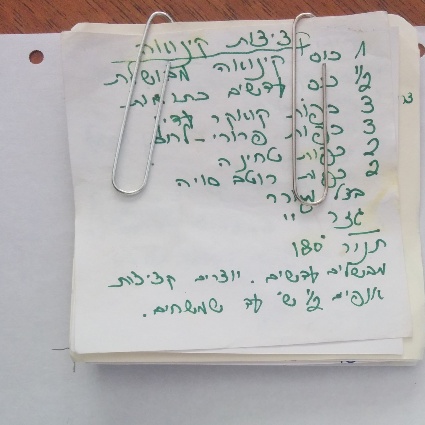 קציצות קינוואה
1 כוס קינואה מבושלת
1/2 כוס עדשים כתומות
3 כפות קוואקר עדין
3 כפות פרורי-לחם
2 כפות טחינה
2 כפות רוטב סויה
בצל
גזר
תנור 180°
מבשלים עדשים. יוצרים קציצות
אופים 1/2 ש' עד שמשחים.